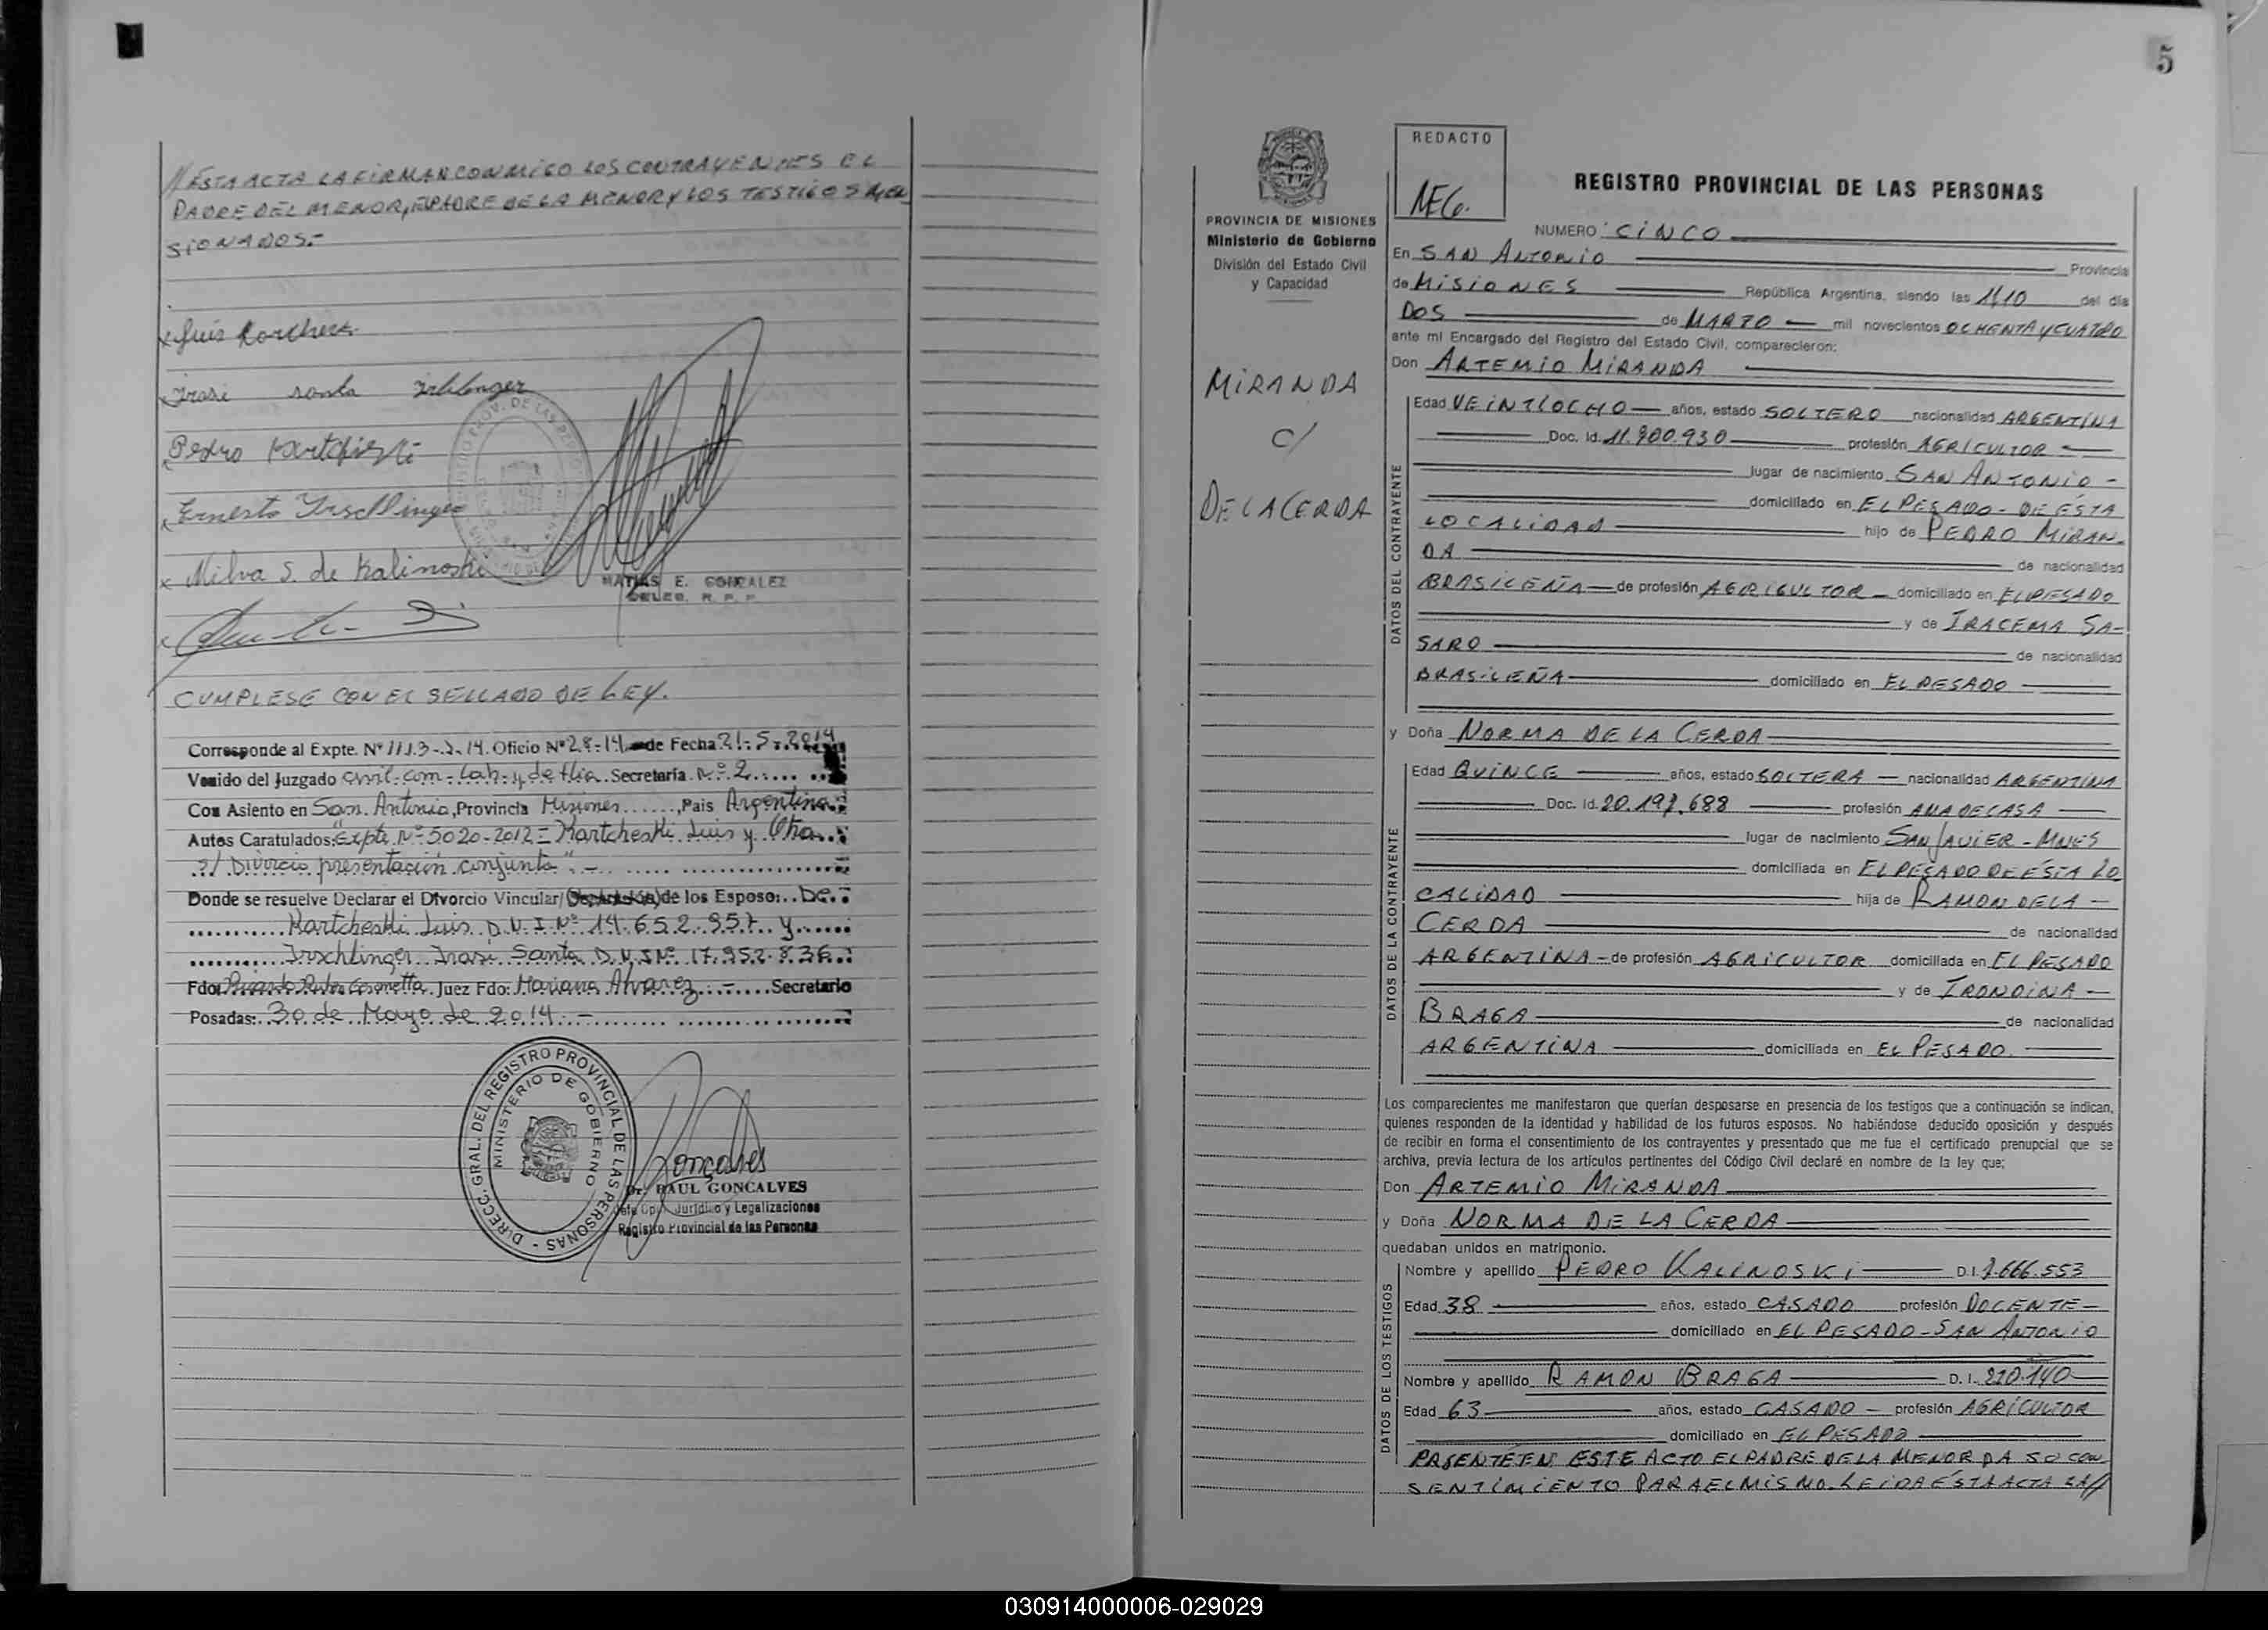 // ESTA ACTA LA FIRMAN CONMIGO LOS CONTRAYENTES EL
PADRE DEL MENOR, EL PADRE DE LA MENOR Y LOS TESTIGOS MEN
SIONADOS.-
x Luis
x Irasi santa
Pedro
Ernesto
x Milva S. de Kalinoski
MATIAS E. GONZALEZ
DELEG. R. P. P.
CUMPLESE CON EL SELLADO DE LEY.
Corresponde al Expte. Nº 1113-J-14. Oficio Nº 28-14 de Fecha 21-5-2014
Venido del Juzgado Civil. com- Lab- y de flia. Secretaría Nº 2
Con Asiento en San Antonio, Provincia Misiones, Pais Argentina
Autos Caratulados: "Expte Nº 5020-2012 = Kartcheski Luis y Otra
s/ Divorcio presentación conjunta" -
Donde se resuelve Declarar el Divorcio Vincular/(Separación) de los Esposo: De:
Kartcheski Luis D.N.I Nº 14.652.957 y
Irschlinger Irasi Santa D.N.I Nº 17.952.836
Fdo: Juez Fdo: Mariana Alvarez - Secretario
Posadas: 30 de Mayo de 2014 -
DIRECC. GRAL. DEL REGISTRO PROVINCIAL DE LAS PERSONAS -
MINISTERIO DE GOBIERNO
Goncalves
Dr. RAUL GONCALVES
Jefe Dpto. Jurídico y Legalizaciones
Registro Provincial de las Personas
5
PROVINCIA DE MISIONES
Ministerio de Gobierno
División del Estado Civil
y Capacidad
MIRANDA
c/
DE LA CERDA
REDACTO
MEG.
REGISTRO PROVINCIAL DE LAS PERSONAS
NUMERO CINCO
En SAN ANTONIO Provincia
de MISIONES República Argentina, siendo las 11,10 del día
DOS de MARZO mil novecientos OCHENTA Y CUATRO
ante mí Encargado del Registro del Estado Civil, comparecieron:
Don ARTEMIO MIRANDA
DATOS DEL CONTRAYENTE
Edad VEINTIOCHO años, estado SOLTERO nacionalidad ARGENTINA
Doc. Id. 11.900.930 profesión AGRICULTOR
lugar de nacimiento SAN ANTONIO -
domiciliado en EL PESADO - DE ÉSTA
LOCALIDAD hijo de PEDRO MIRAN-
DA de nacionalidad
BRASILEÑA de profesión AGRICULTOR domiciliado en EL PESADO
y de IRACEMA SA-
SARO de nacionalidad
BRASILEÑA domiciliado en EL PESADO
y Doña NORMA DE LA CERDA
DATOS DE LA CONTRAYENTE
Edad QUINCE años, estado SOLTERA nacionalidad ARGENTINA
Doc. Id. 20.197.688 profesión AMA DE CASA
lugar de nacimiento SAN JAVIER - MNES
domiciliada en EL PESADO DE ÉSTA LO
CALIDAD hija de RAMON DE LA -
CERDA de nacionalidad
ARGENTINA - de profesión AGRICULTOR domiciliada en EL PESADO
y de IRONDINA -
BRAGA de nacionalidad
ARGENTINA domiciliada en EL PESADO.
Los comparecientes me manifestaron que querían desposarse en presencia de los testigos que a continuación se indican,
quienes responden de la identidad y habilidad de los futuros esposos. No habiéndose deducido oposición y después
de recibir en forma el consentimiento de los contrayentes y presentado que me fue el certificado prenupcial que se
archiva, previa lectura de los artículos pertinentes del Código Civil declaré en nombre de la ley que;
Don ARTEMIO MIRANDA
y Doña NORMA DE LA CERDA
quedaban unidos en matrimonio.
DATOS DE LOS TESTIGOS
Nombre y apellido PEDRO KALINOSKI D.I. 7.666.553
Edad 38 años, estado CASADO profesión DOCENTE -
domiciliado en EL PESADO - SAN ANTONIO
Nombre y apellido RAMON BRAGA D. I. 220.140
Edad 63 años, estado CASADO - profesión AGRICULTOR
domiciliado en EL PESADO
PRSENTE EN ESTE ACTO EL PADRE DE LA MENOR DA SO CON
SENTIMIENTO PARA EL MISMO. LEIDA ÉSTA ACTA LA//
030914000006-029029